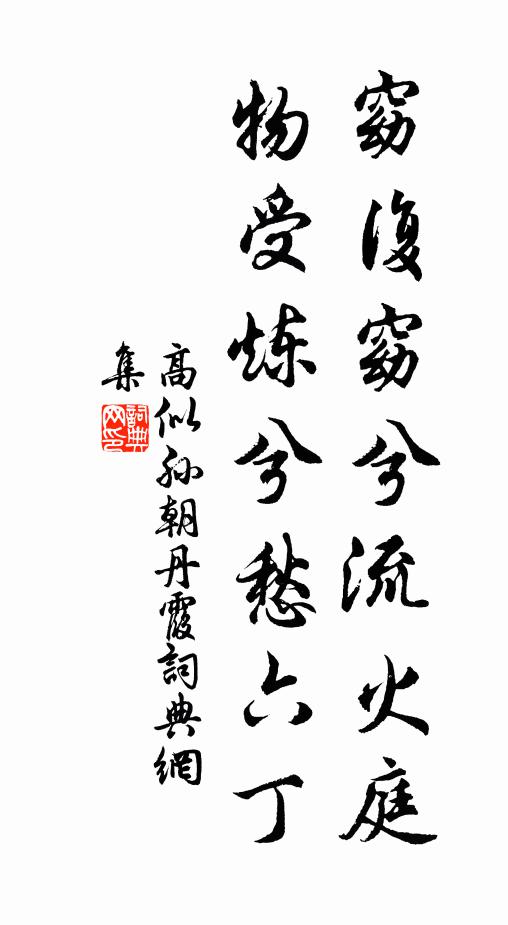 窈復窈兮流火庭
物受炼兮愁六丁
高似孙朝丹霞詞典網
集
詞典网印